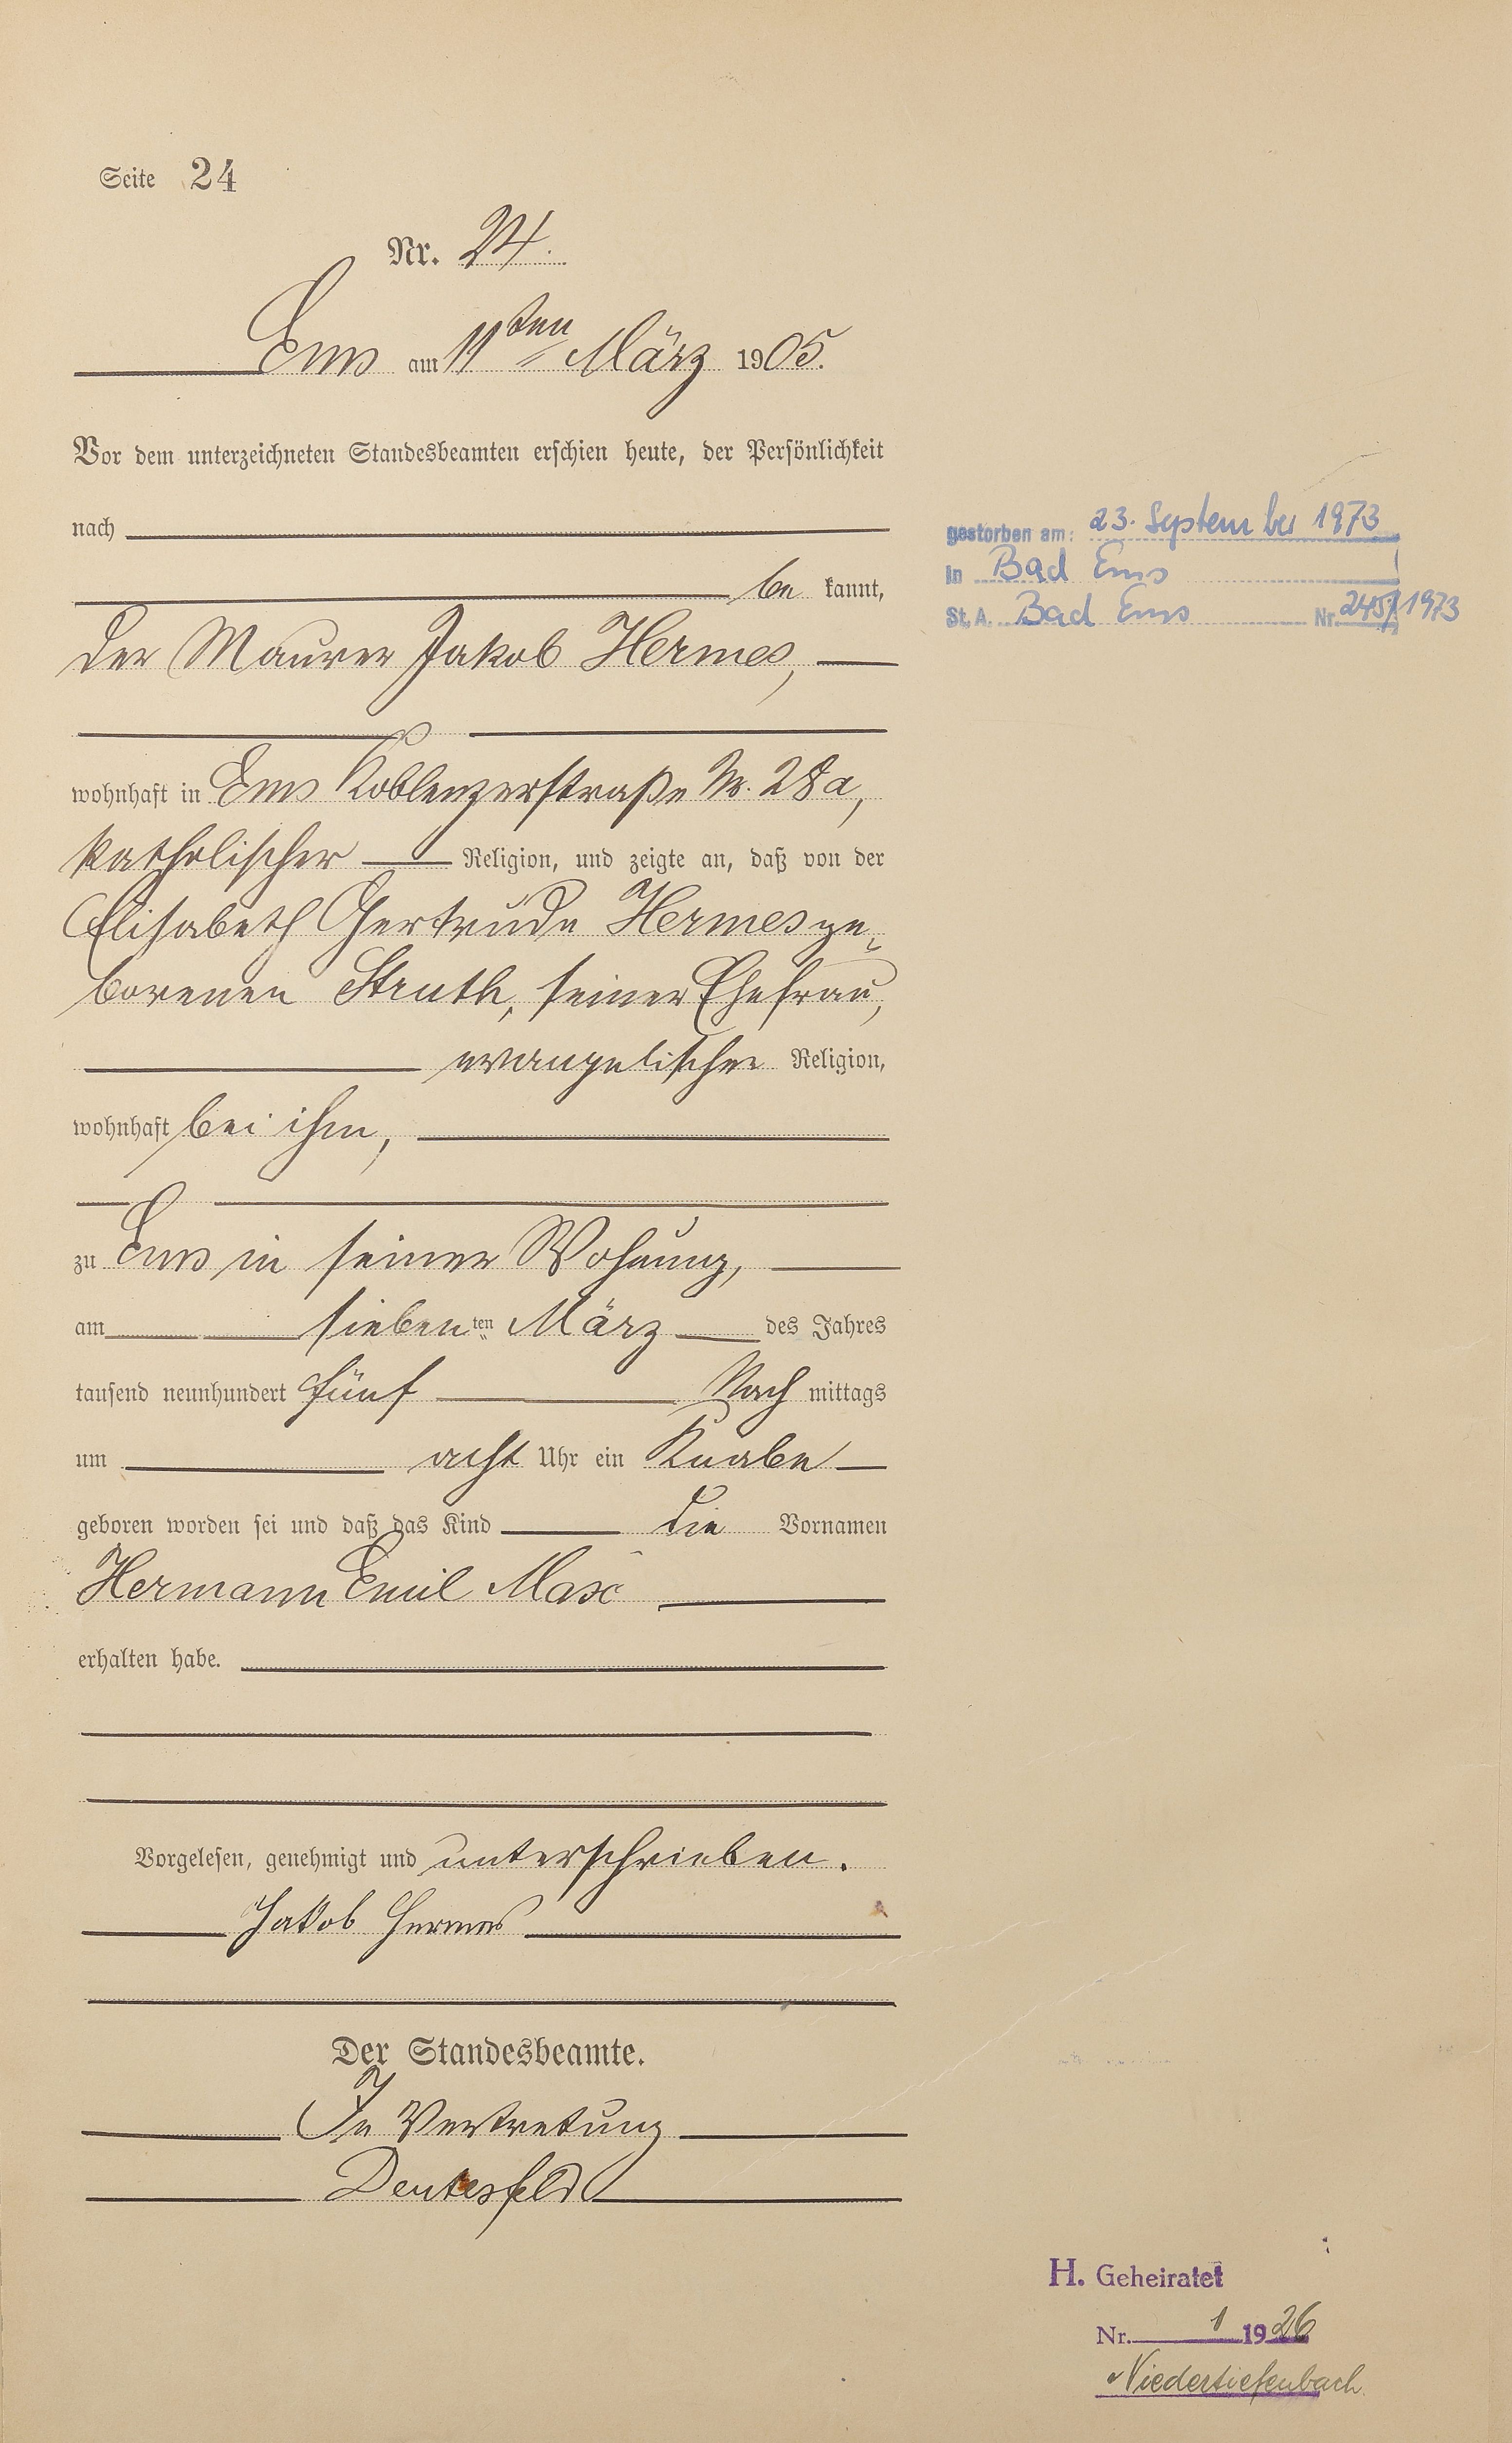 Seite 24
Nr. 24.
Ems am 11ten März 1905.
Vor dem unterzeichneten Standesbeamten erschien heute, der Persönlichkeit
nach
be kannt,
der Maurer Jakob Hermes,
wohnhaft in Ems Koblenzerstraße Nr. 28a,
katholischer Religion, und zeigte an, daß von der
Elisabeth Gertrude Hermes ge-
borenen Struth, seiner Ehefrau,
evangelischer Religion,
wohnhaft bei ihm,
zu Ems in seiner Wohnung,
am siebenten März des Jahres
tausend neunhundert fünf Nach mittags
um acht Uhr ein Knabe
geboren worden sei und daß das Kind die Vornamen
Hermann Emil Max
erhalten habe.
Vorgelesen, genehmigt und unterschrieben.
Jakob Hermes
Der Standesbeamte.
In Vertretung
Deutesfeld
gestorben am: 23. September 1973
in Bad Ems
St.A. Bad Ems Nr. 245/1973
H. Geheiratet
Nr. 1 1926
Niedertiefenbach.